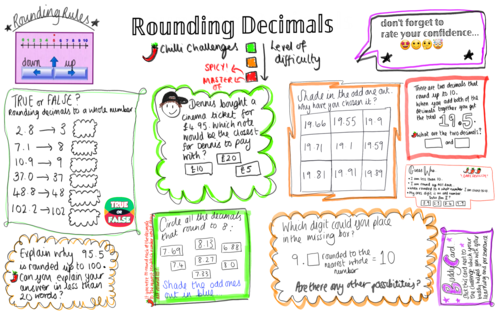 Rounding Rules
down
up
Rounding Decimals
Chilli Challenges
SPICY!
MASTER OF
Level of
difficulty
don't forget to
rate your confidence...
TRUE or FALSE?
Rounding decimals to a whole number
2.8 → 3
7.1 → 8
10.9 → 9
37.0 → 37
48.8 → 48
102.2 → 102
TRUE
or
FALSE
Dennis bought a
cinema ticket for
£4.95. Which note
would be the closest
for Dennis to pay
with?
£20
£10
£5
Shade in the odd one out
why have you chosen it?
19.66 19.55 19.9
371 19.1 19.59
19.81 19.91 19.89
There are two decimals that
round up to 10.
When you add both of the
decimals together you get
the total
19.5.
What are the two decimals?
and
Explain why 95.5
is rounded up to 100.
Can you explain your
answer in less than
20 words?
Circle all the decimals
that round to 8.
7.69 8.13 6.88
7.4 8.27 8.0
7.23
Shade the odd ones
out in blue
Which digit could you place
in the missing box?
9.□ rounded to the
nearest whole = 10
number
Are there any other possibilities?